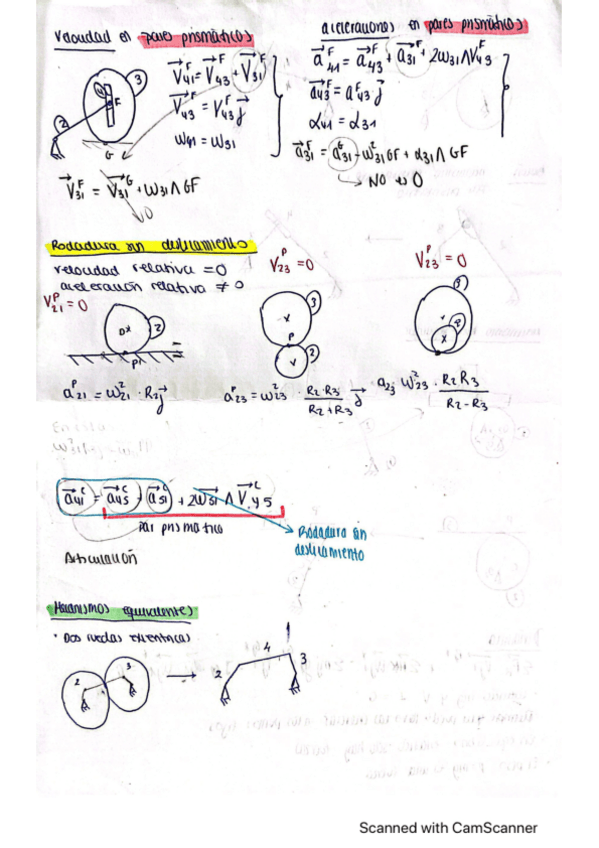 Velocidad en pares prismáticos
V⃗₄₁ᶠ = V⃗₄₃ᶠ + V⃗₃₁ᶠ
V⃗₄₃ᶠ = V₄₃ᶠ j⃗
ω₄₁ = ω₃₁
2 4 F 3
G
V⃗₃₁ᶠ = V⃗₃₁ᴳ + ω₃₁ ∧ GF
0
aceleraciones en pares prismáticos
a⃗₄₁ᶠ = a⃗₄₃ᶠ + a⃗₃₁ᶠ + 2ω₃₁ ∧ V₄₃ᶠ
a⃗₄₃ᶠ = a₄₃ᶠ j⃗
α₄₁ = α₃₁
a⃗₃₁ᶠ = a₃₁ᴳ - ω²₃₁ GF + α₃₁ ∧ GF
NO es 0
Rodadura sin deslizamiento
velocidad relativa = 0
aceleración relativa ≠ 0
V₂₁ᴾ = 0
2
P
V₂₃ᴾ = 0
3
P
2
V₂₃ᴾ = 0
3
2
a₂₁ᴾ = ω²₂₁ · R₂ j⃗
a₂₃ᴾ = ω²₂₃ · R₂·R₃ / R₂+R₃ j⃗
a₂₃ ω²₂₃ · R₂ R₃ / R₂-R₃
a⃗₄₁ᶜ = a⃗₄₅ᶜ + a⃗₅₁ᶜ + 2ω⃗₅₁ ∧ V⃗₄₅ᶜ
Par prismático
Rodadura sin
deslizamiento
Articulación
Mecanismos equivalentes
· Dos ruedas excéntricas
2 3
→
2 4 3
Scanned with CamScanner